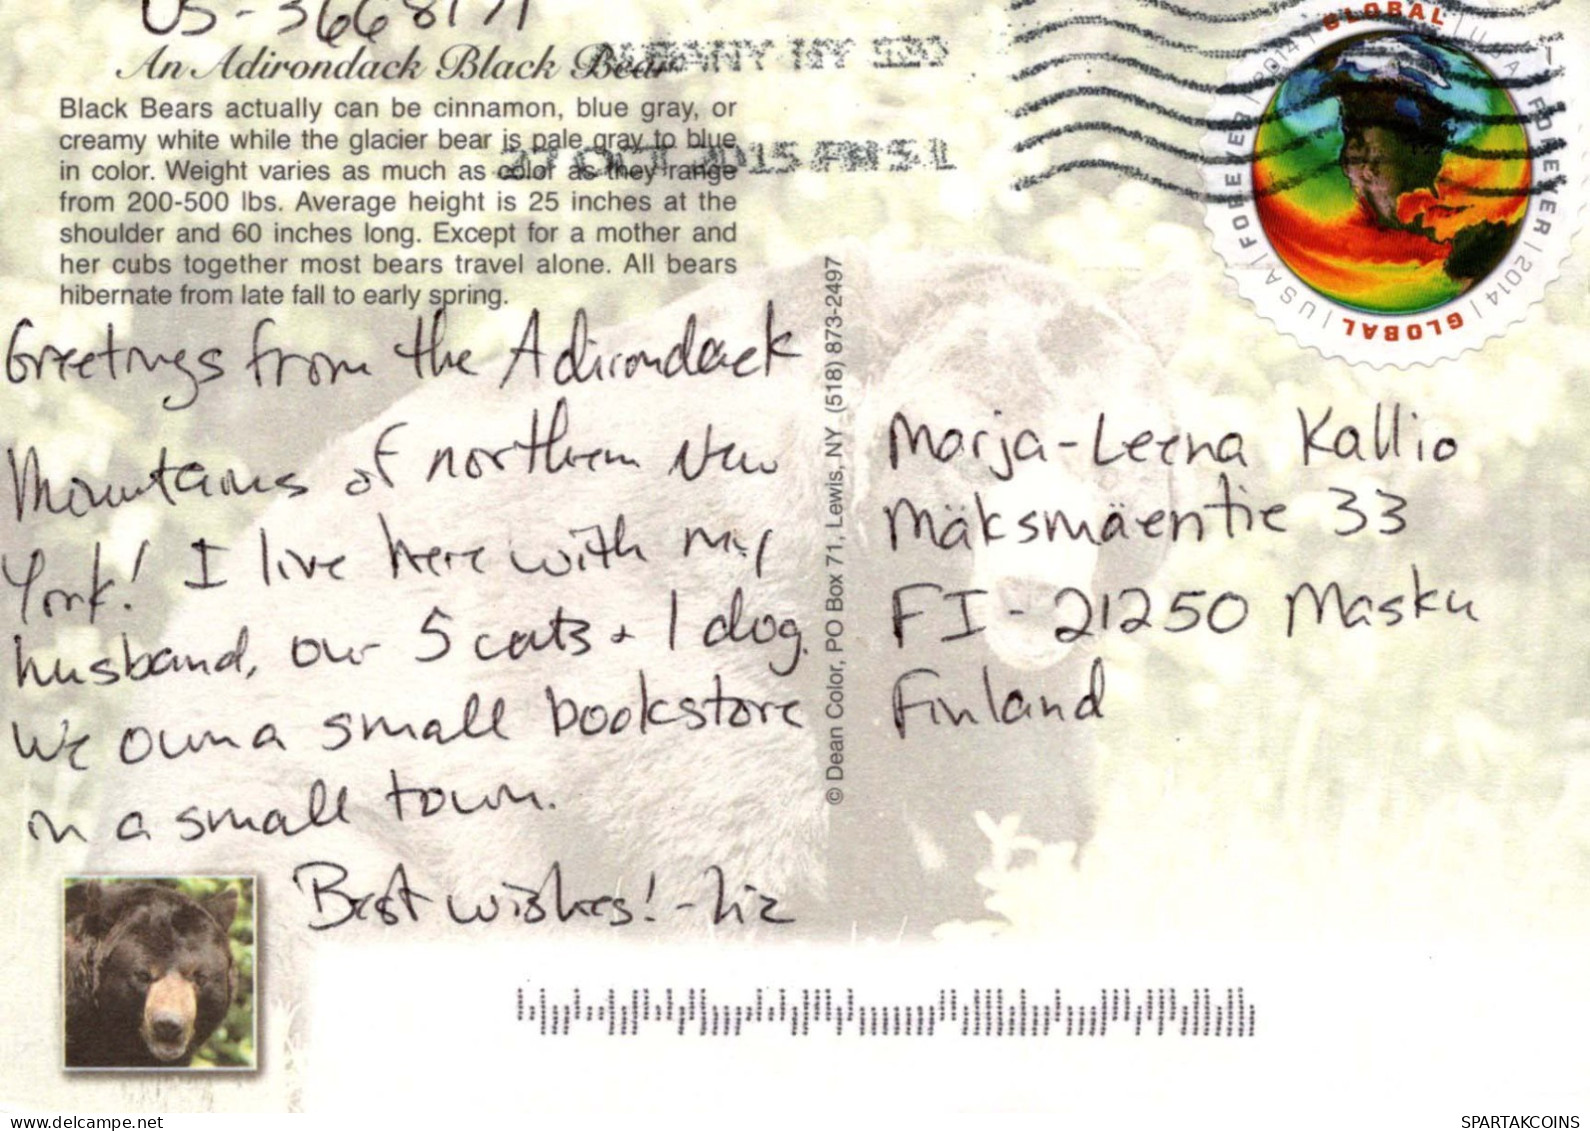 US-3668171
An Adirondack Black Bear
ALBANY NY 120
Black Bears actually can be cinnamon, blue gray, or
creamy white while the glacier bear is pale gray to blue
in color. Weight varies as much as color as they range
from 200-500 lbs. Average height is 25 inches at the
shoulder and 60 inches long. Except for a mother and
her cubs together most bears travel alone. All bears
hibernate from late fall to early spring.
27 OCT 2015 PM 5 L
GLOBAL | USA | FOREVER | 2014 | GLOBAL | USA | FOREVER | 2014 |
Greetings from the Adirondack
Mountains of northern New
York! I live here with my
husband, our 5 cats + 1 dog.
We own a small bookstore
in a small town.
Best wishes! - Liz
© Dean Color, PO Box 71, Lewis, NY (518) 873-2497
Marja-Leena Kallio
Mäksmäentie 33
FI - 21250 Masku
Finland
www.delcampe.net
SPARTAKCOINS